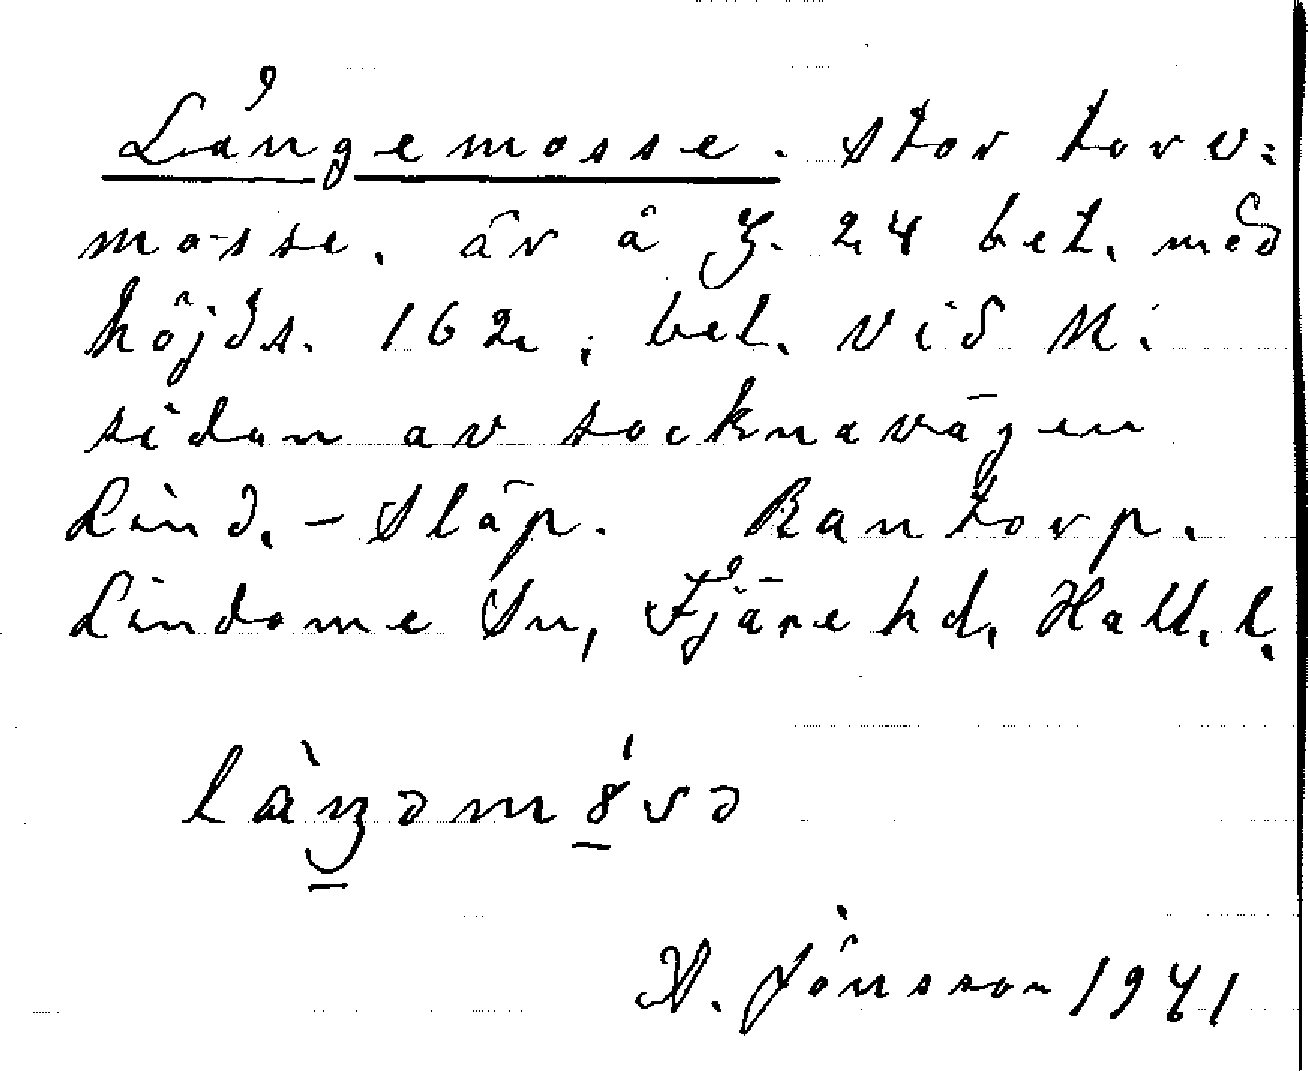 Långemosse. Stor torv-
mosse, är å Z. 24 bet. med
höjds. 162, bel. vid N.
sidan av socknavägen
Lind. - Släp. Rantorp.
Lindome Sn, Fjäre hd, Hall. l.
H. Jönsson 1941